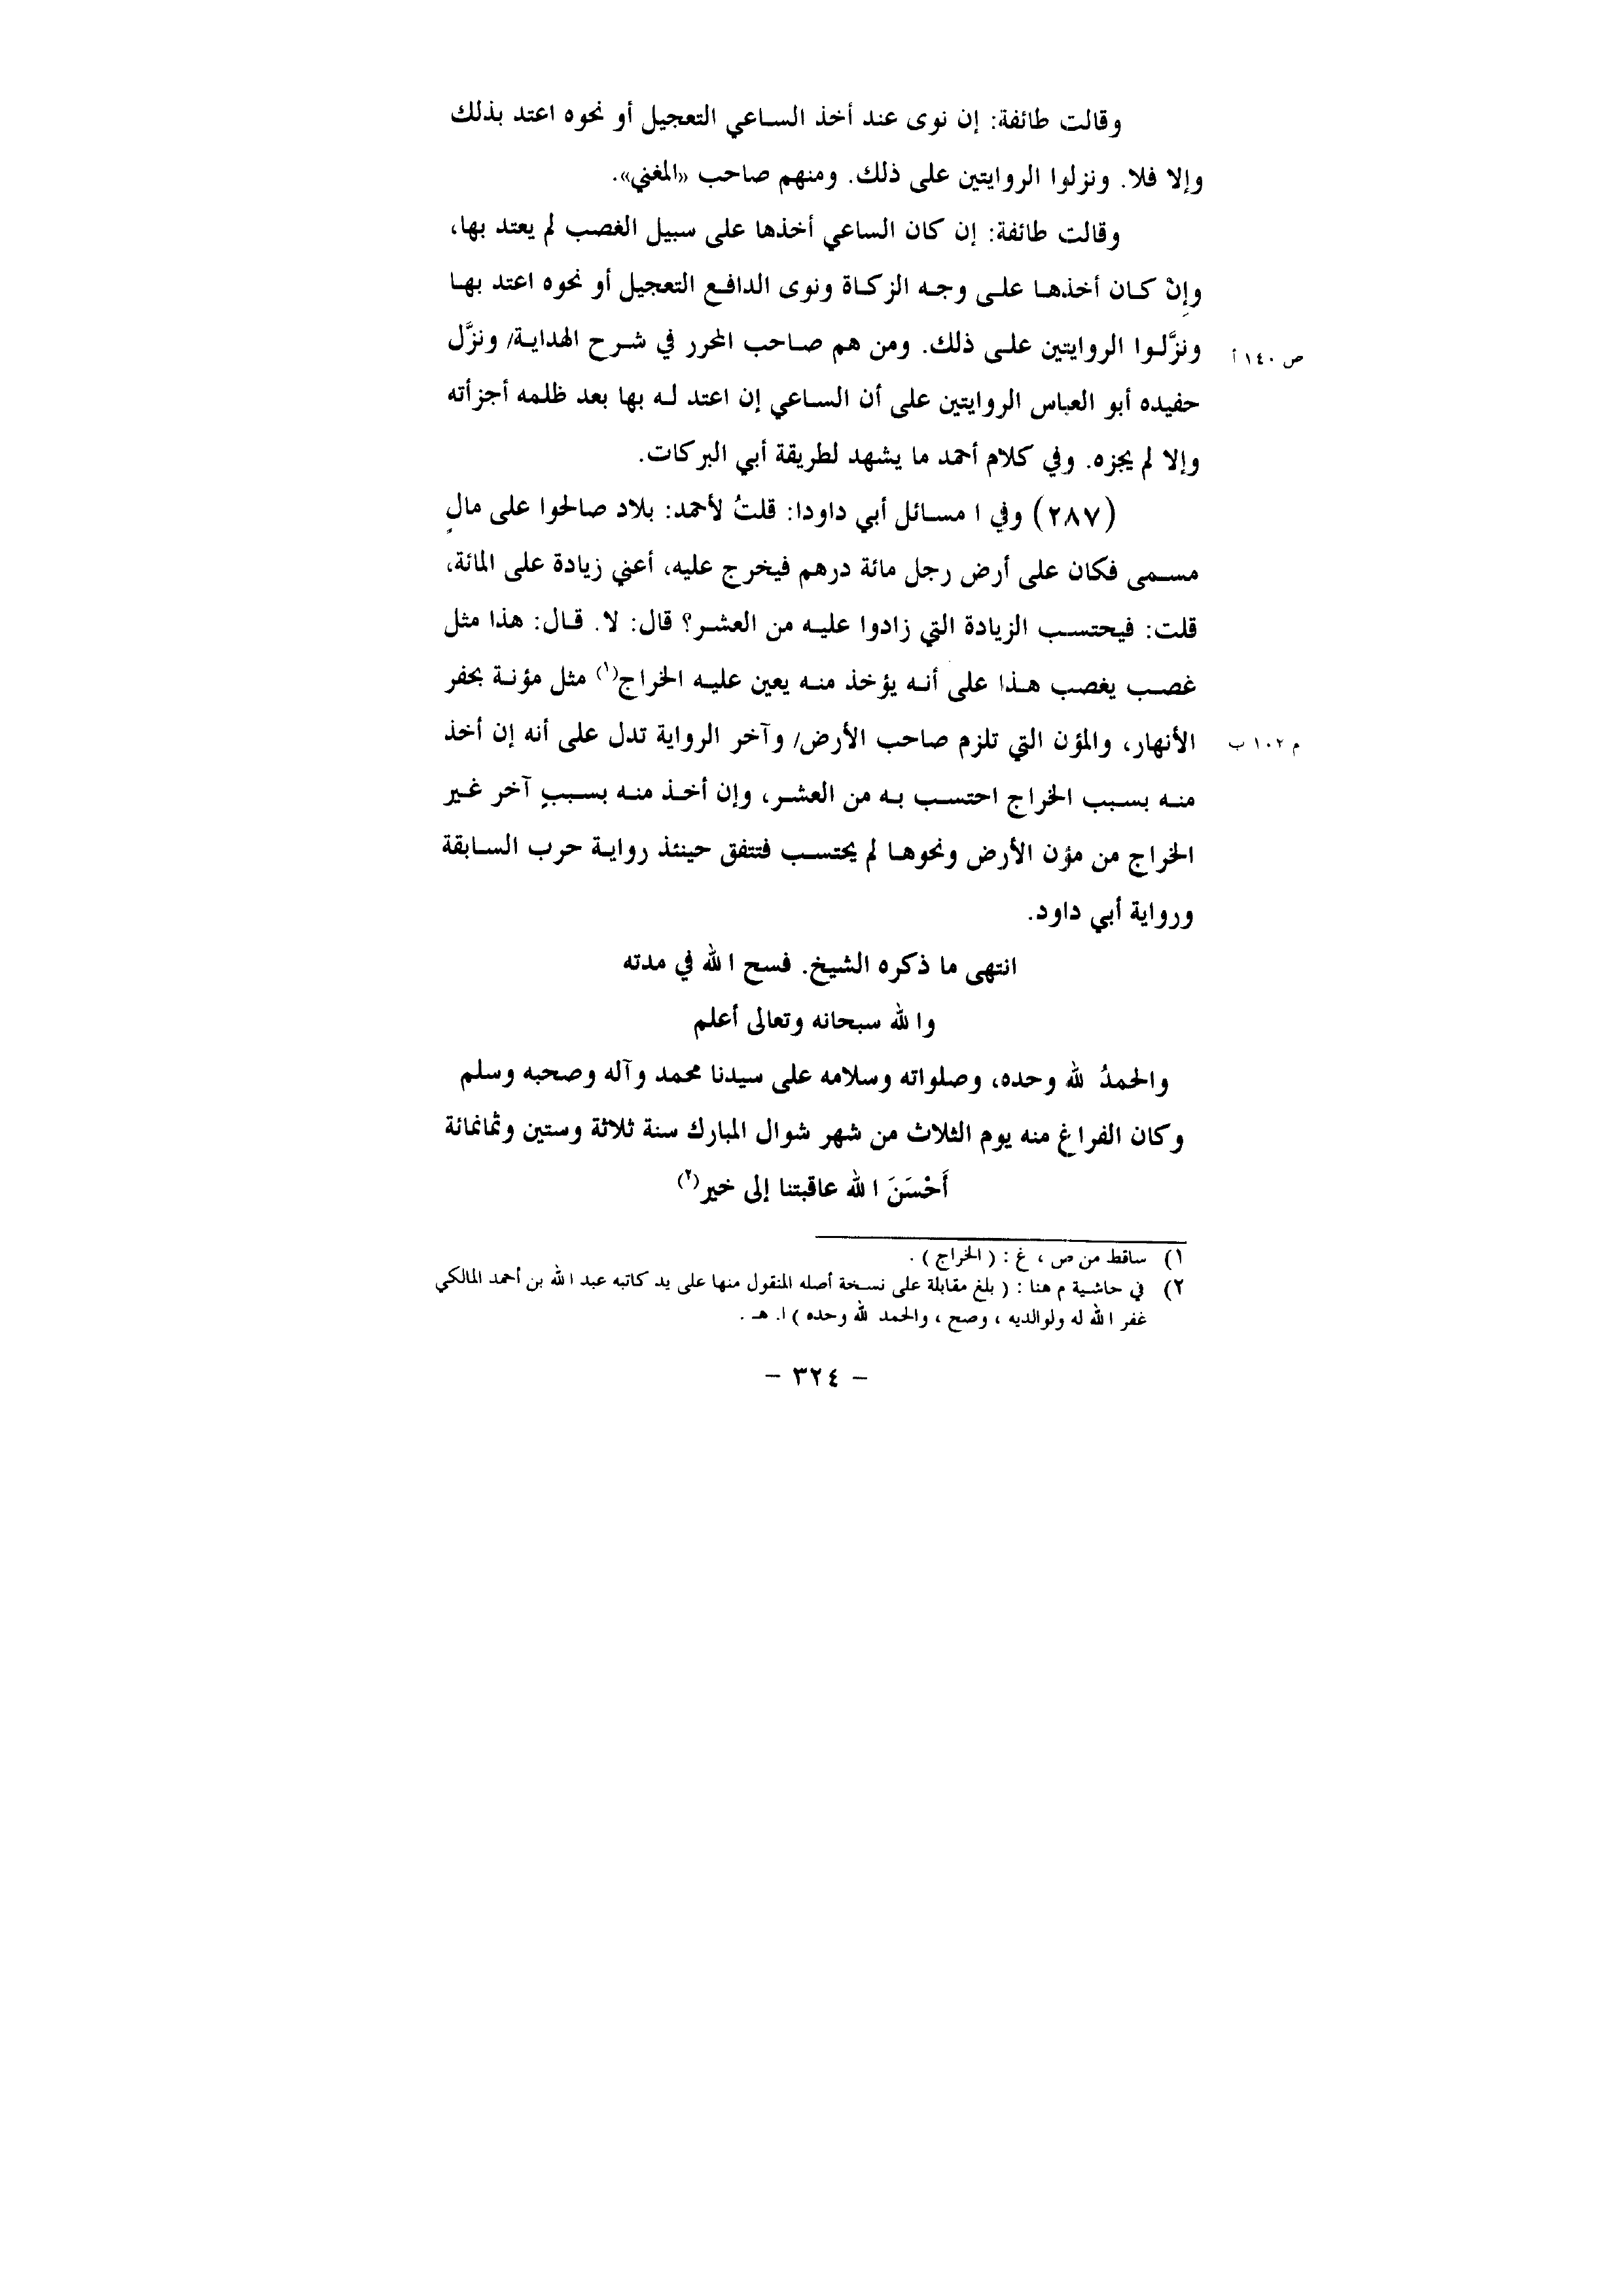 وقالت طائفة: إن نوى عند أخذ الساعي التعجيل أو نحوه اعتد بذلك
وإلا فلا. ونزلوا الروايتين على ذلك. ومنهم صاحب «المغني».
وقالت طائفة: إن كان الساعي أخذها على سبيل الغصب لم يعتد بها،
وإِنْ كان أخذها على وجه الزكاة ونوى الدافع التعجيل أو نحوه اعتد بها
ونزَّلوا الروايتين على ذلك. ومن هم صاحب المحرر في شرح الهداية/ ونزَّل
ص ١٤٠ أ
حفيده أبو العباس الروايتين على أن الساعي إن اعتد له بها بعد ظلمه أجزأته
وإلا لم يجزه. وفي كلام أحمد ما يشهد لطريقة أبي البركات.
(٢٨٧) وفي ا مسائل أبي داودا: قلتُ لأحمد: بلاد صالحوا على مالٍ
مسمى فكان على أرض رجل مائة درهم فيخرج عليه، أعني زيادة على المائة،
قلت: فيحتسب الزيادة التي زادوا عليه من العشر؟ قال: لا. قال: هذا مثل
غصب يغصب هذا على أنه يؤخذ منه يعين عليه الخراج(١) مثل مؤنة بحفر
الأنهار، والمؤن التي تلزم صاحب الأرض/ وآخر الرواية تدل على أنه إن أخذ
م ١٠٢ ب
منه بسبب الخراج احتسب به من العشر، وإن أخذ منه بسببٍ آخر غير
الخراج من مؤن الأرض ونحوها لم يحتسب فتتفق حينئذ رواية حرب السابقة
ورواية أبي داود.
انتهى ما ذكره الشيخ. فسح الله في مدته
والله سبحانه وتعالى أعلم
والحمدُ لله وحده، وصلواته وسلامه على سيدنا محمد وآله وصحبه وسلم
وكان الفراغ منه يوم الثلاث من شهر شوال المبارك سنة ثلاثة وستين وثمانمائة
أَحْسَنَ الله عاقبتنا إلى خير(٢)
١) ساقط من ص ، غ : ( الخراج ) .
٢) في حاشية م هنا : ( بلغ مقابلة على نسخة أصله المنقول منها على يد كاتبه عبد الله بن أحمد المالكي
غفر الله له ولوالديه ، وصح ، والحمد لله وحده ) ا. هـ .
– ٣٢٤ –